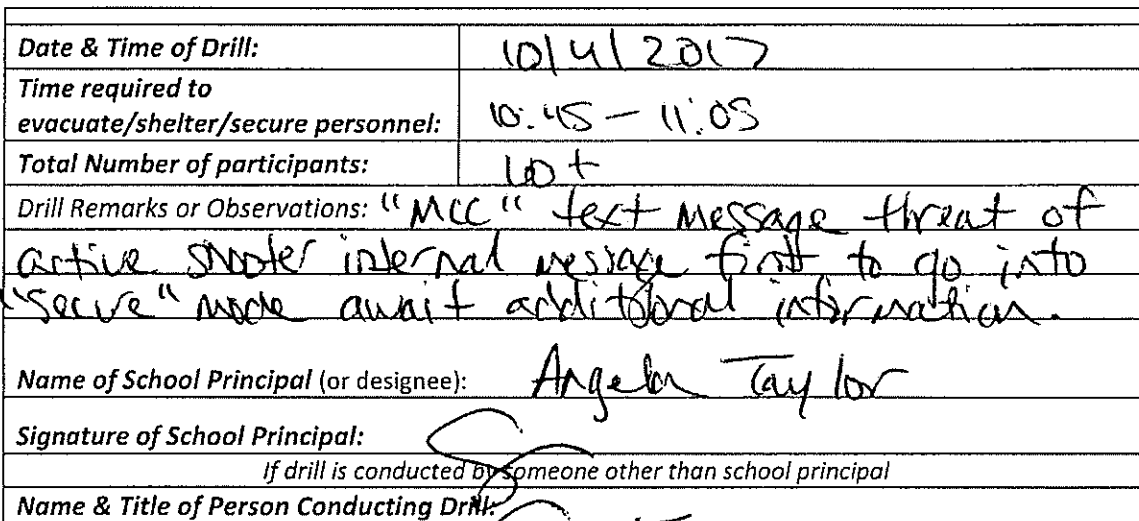 Date & Time of Drill: 10/4/2017
Time required to
evacuate/shelter/secure personnel: 10:45 – 11:05
Total Number of participants: 60+
Drill Remarks or Observations: "MCC" text message threat of
active shooter internal message first to go into
"secure" mode await additional information.
Name of School Principal (or designee): Angela Taylor
Signature of School Principal:
If drill is conducted by someone other than school principal
Name & Title of Person Conducting Drill: